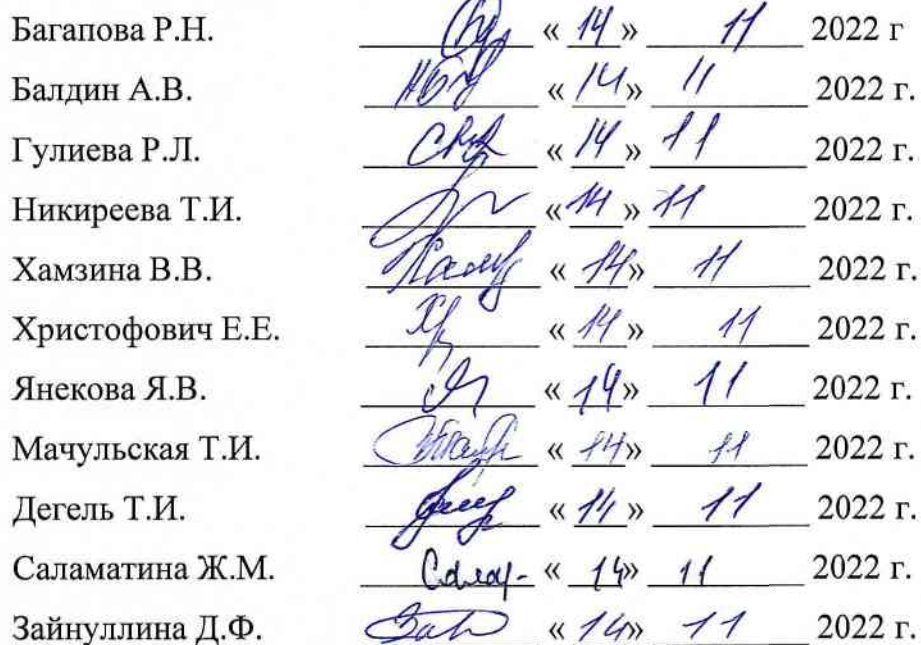 Багапова Р.Н. « 14 » 11 2022 г
Балдин А.В. « 14 » 11 2022 г.
Гулиева Р.Л. « 14 » 11 2022 г.
Никиреева Т.И. « 14 » 11 2022 г.
Хамзина В.В. « 14 » 11 2022 г.
Христофович Е.Е. « 14 » 11 2022 г.
Янекова Я.В. « 14 » 11 2022 г.
Мачульская Т.И. « 14 » 11 2022 г.
Дегель Т.И. « 14 » 11 2022 г.
Саламатина Ж.М. « 14 » 11 2022 г.
Зайнуллина Д.Ф. « 14 » 11 2022 г.